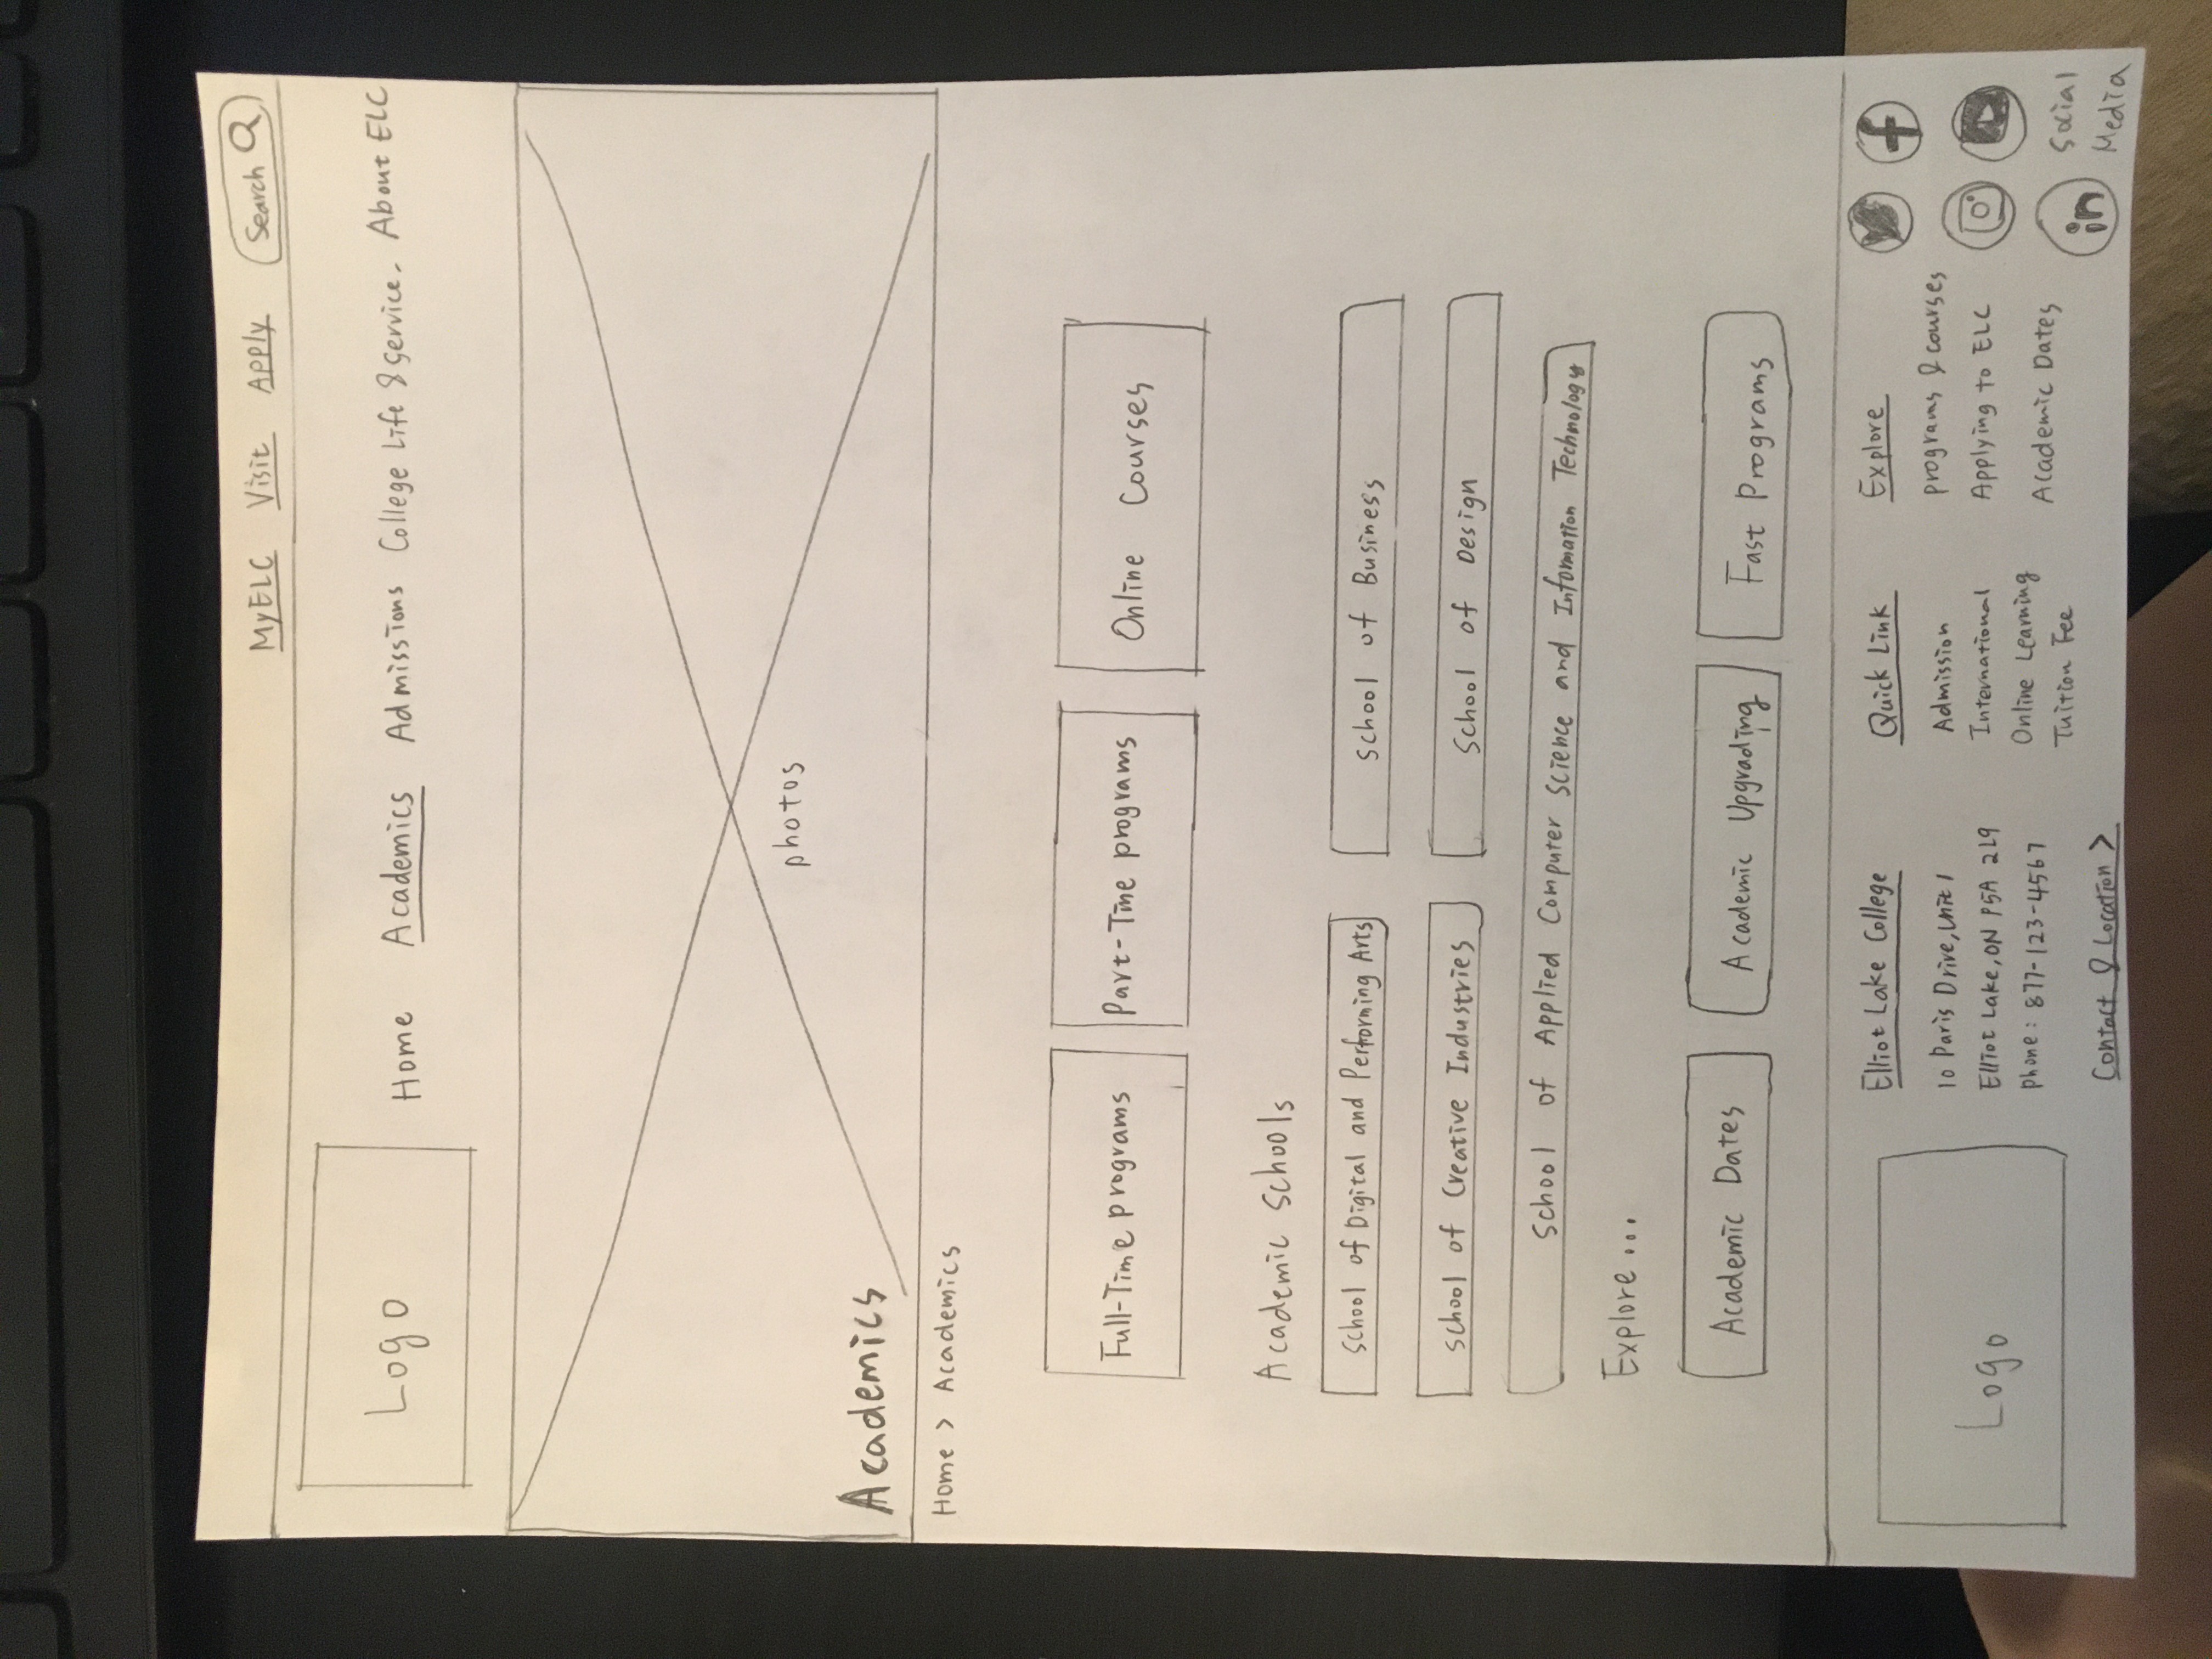 MyELC Visit Apply Search
Logo
Home Academics Admissions College Life & Service. About ELC
photos
Academics
Home > Academics
Full-Time programs Part-Time programs Online Courses
Academic Schools
School of Digital and Performing Arts School of Business
School of Creative Industries School of Design
School of Applied Computer Science and Information Technology
Explore ...
Academic Dates Academic Upgrading Fast Programs
Logo
Elliot Lake College
10 Paris Drive, Unit 1
Elliot Lake, ON P5A 2L9
phone: 877-123-4567
Contact & Location >
Quick Link
Admission
International
Online Learning
Tuition Fee
Explore
programs & courses
Applying to ELC
Academic Dates
f
in
Social
Media